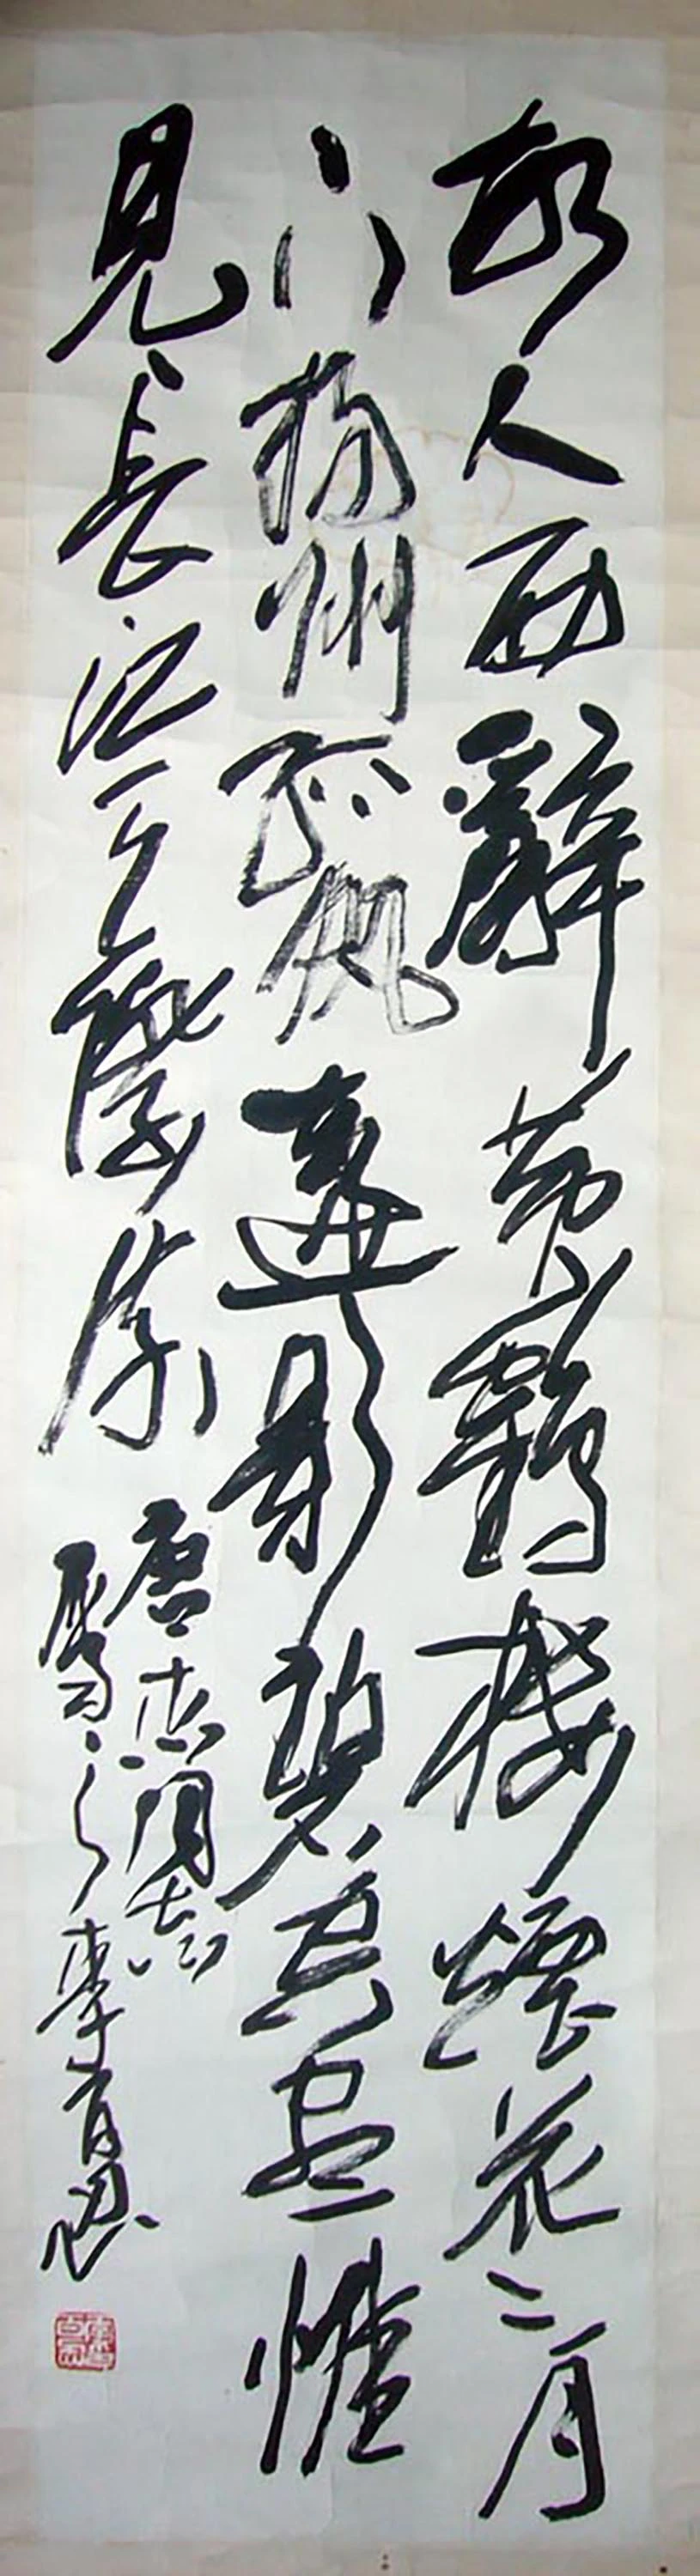 故人西辭黃鶴樓煙花三月
下揚州孤帆遠影碧空盡惟
見長江天際流
唐同志
屬之 李百忍